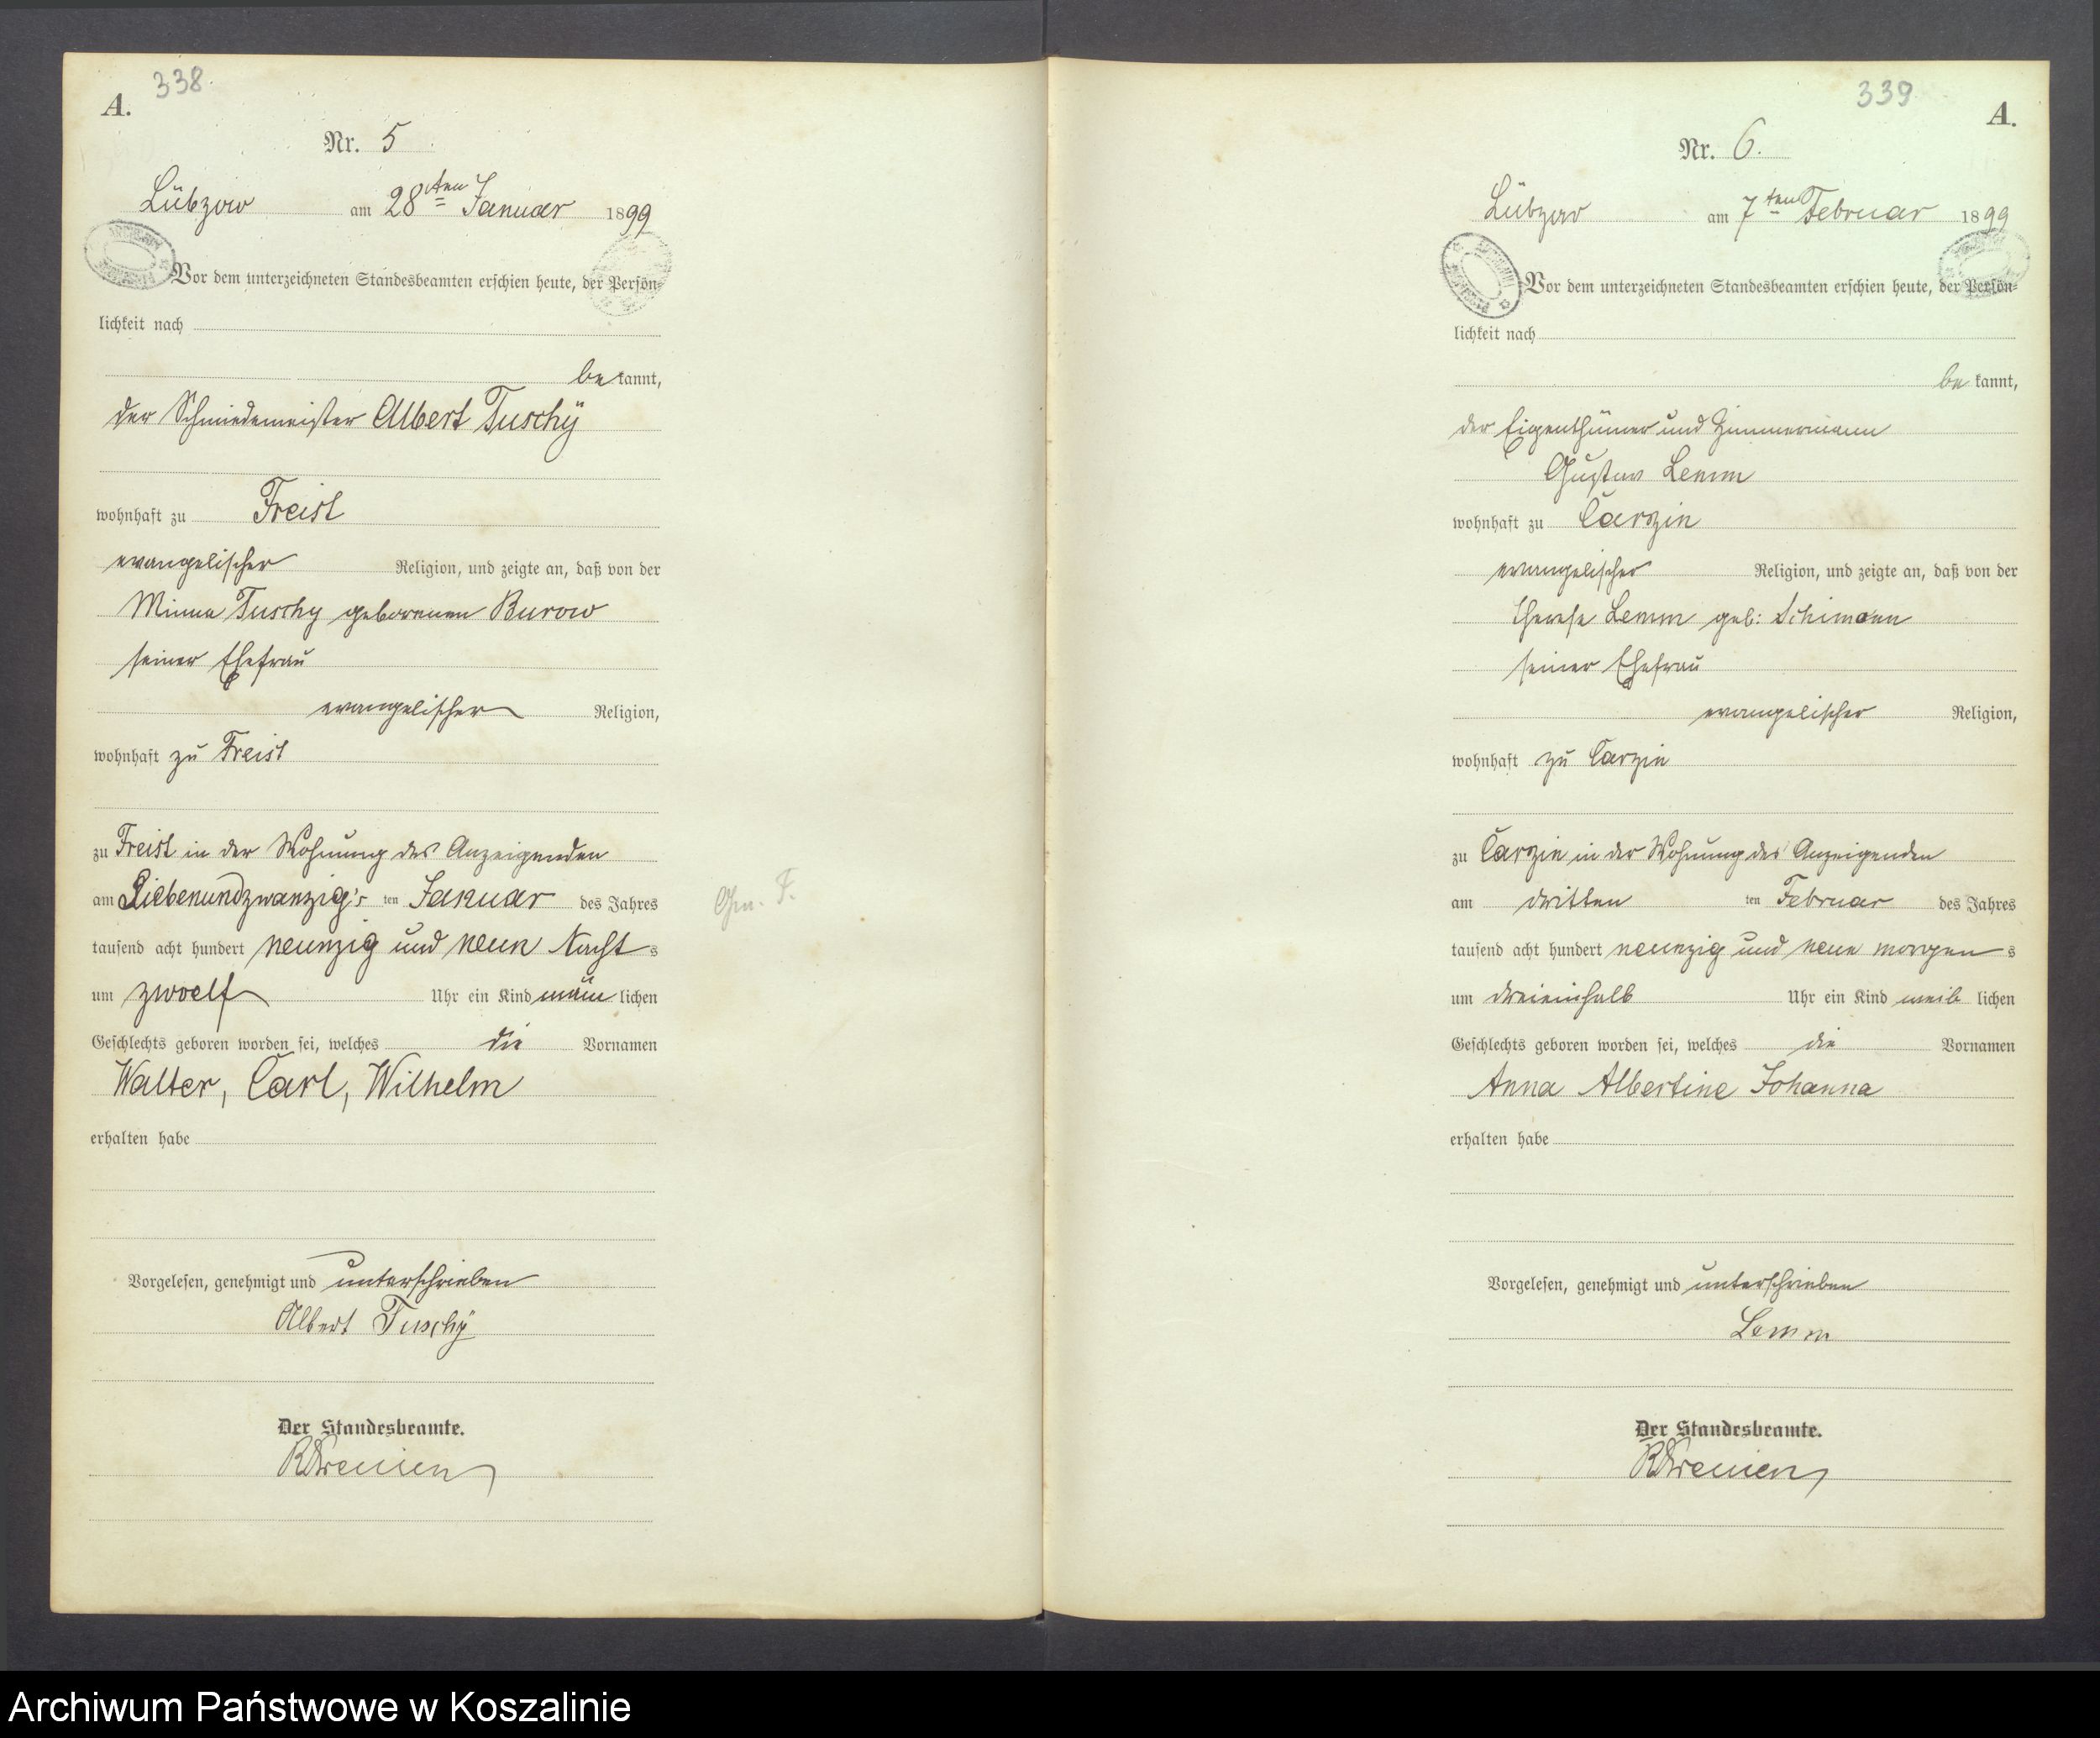 338.
A.
Nr. 5
Lübzow am 28sten Januar 1899
Vor dem unterzeichneten Standesbeamten erschien heute, der Persön-
lichkeit nach
be kannt,
der Schmiedemeister Albert Tuschÿ
wohnhaft zu Freist
evangelischer Religion, und zeigte an, daß von der
Minna Tuschy geborenen Burow
seiner Ehefrau
evangelischer Religion,
wohnhaft zu Freist
zu Freist in der Wohnung des Anzeigenden
am Siebenundzwanzig's ten Januar des Jahres
tausend acht hundert neunzig und neun Nacht s
um zwoelf Uhr ein Kind män lichen
Geschlechts geboren worden sei, welches die Vornamen
Walter, Carl, Wilhelm
erhalten habe
Vorgelesen, genehmigt und unterschrieben
Albert Tuschÿ
Der Standesbeamte.
339
A.
Nr. 6.
Lübzow am 7ten Februar 1899
Vor dem unterzeichneten Standesbeamten erschien heute, der Persön-
lichkeit nach
be kannt,
der Eigenthümer und Zimmermann
Gustav Lemm
wohnhaft zu Carzin
evangelischer Religion, und zeigte an, daß von der
Therese Lemm geb: Schimann
seiner Ehefrau
evangelischer Religion,
wohnhaft zu Carzin
zu Carzin in der Wohnung des Anzeigenden
am dritten ten Februar des Jahres
tausend acht hundert neunzig und neun morgen s
um dreieinhalb Uhr ein Kind weib lichen
Geschlechts geboren worden sei, welches die Vornamen
Anna Albertine Johanna
erhalten habe
Vorgelesen, genehmigt und unterschrieben
Lemm
Der Standesbeamte.
Archiwum Państwowe w Koszalinie